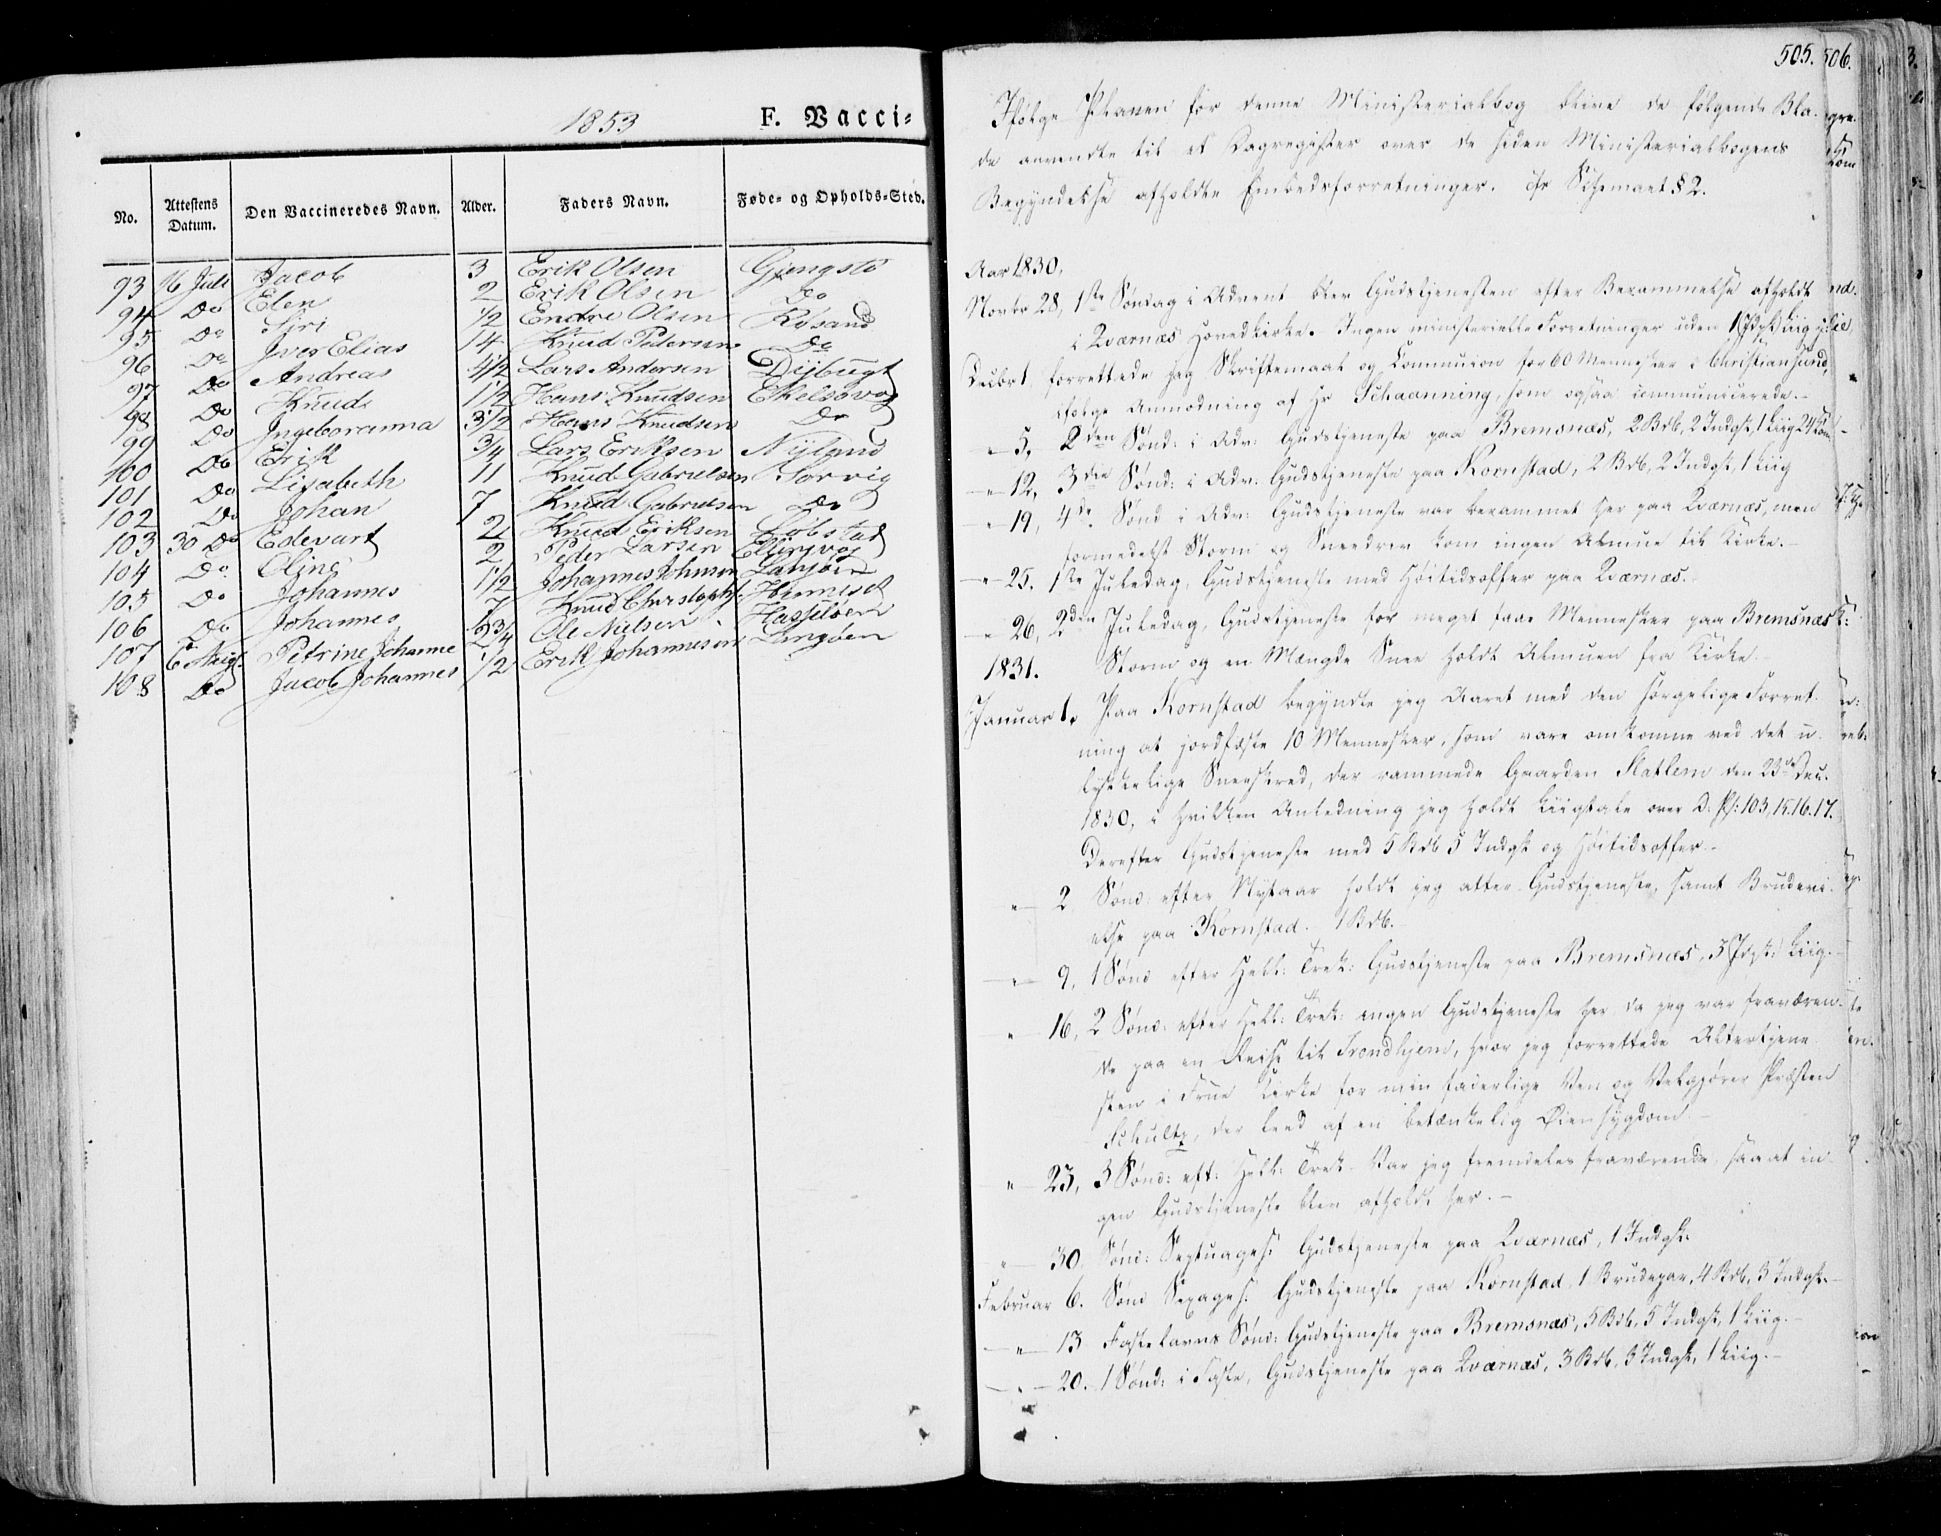 1853
F. Vacci-
No.
Attestens Datum.
Den Vaccineredes Navn.
Alder.
Faders Navn.
Føde- og Opholds-Sted.
93 16 Juli Jacob 3 Erik Olsen Gjengstø
94 Do Elen 2 Erik Olsen Do
95 Do Siri 1/2 Endre Olsen Røsand
96 Do Iver Elias 14 Knud Pedersen Do
97 Do Andreas Lars Andersen
98 Do Knud 1 1/2 Hans Knudsen
99 Do Ingeboranna 3 1/2 Hans Knudsen Do
100 Do Erik 3/4 Lars Eriksen Nylund
101 Do Lisabeth 11 Knud Gabrielsen Sorvig
102 Do Johan 7 Knud Gabrielsen Do
103 30 Do Edevart 2 Knud Eriksen
104 Do Oline 2 Peder Larsen Ellingvog
105 Do Johannes 1 1/2 Johannes Johnsen Langøen
106 Do Johannes 7 Knud Christophs.
107 6 Aug. Petrine Johanne 2 3/4 Ole Nielsen Hasseløen
108 Do Jacob Johannes 1/2 Erik Johannesen Langøen
505. 506.
Ifølge Planen for denne Ministerialbog blive de følgende Bla-
de anvendte til et Dagregister over de siden Ministerialbogens
Begyndelse afholdte Embedsforretninger. cfr Schemaet § 2.
Aar 1830.
Novbr 28, 1ste Søndag i Advent blev Gudstjenesten efter Berammelse afholdt
i Qværnæs Hovedkirke. Ingen ministerielle Forretninger uden 1
Decbr 1 forrettede jeg Skriftemaal og Communion for 60 Mennesker i Christiansund,
ifølge Anmodning af Hr Schaanning, som ogsaa communicerede.-
" 5, 2den Sønd: i Adv: Gudstjeneste paa Bremsnæs, 2 Bdb, 2 Indgst, 1 Liig 24 Kom
" 12, 3die Sønd: i Adv: Gudstjeneste paa Kornstad, 2 Bdb, 2 Indgst, 1 Liig
" 19, 4de Sønd i Adv: Gudstjeneste var berammet her paa Qværnæs, men
formedelst Storm og Sneedrev kom ingen Almue til Kirke.-
" 25. 1ste Juledag, Gudstjeneste med Høitidsoffer paa Qværnæs.
" 26, 2den Juledag, Gudstjeneste for meget faae Mennesker paa Bremsnæs
1831. Storm og en Mængde Snee holdt Almuen fra Kirke.-
Januar 1. Paa Kornstad begyndte jeg Aaret med den sørgelige Forret-
ning at jordfæste 10 Mennesker, som vare omkomne ved det u-
lykkelige Sneeskred, der rammede Gaarden Slatlem den 23de Dec.
1830, i hvilken Anledning jeg holdt Liigtale over D. Ps: 103, 15. 16. 17.
Derefter Gudstjeneste med 5 Bdb 5 Indgst og Høitidsoffer.-
" 2 Sønd: efter Nytaar holdt jeg atter Gudstjeneste, samt Brudevi-
else paa Kornstad. 1 Bdb.-
" 9, 1 Sønd efter Hell: Trek: Gudstjeneste paa Bremsnæs, 3 Liig.-
" 16, 2 Sønd: efter Hell: Trek: ingen Gudstjeneste her, da jeg var fraværen-
de paa en Reise til Trondhjem, hvor jeg forrettede Altertjene-
sten i Frue Kirke for min faderlige Ven og Velgjører Præsten
Schultz, der leed af en betænkelig Øiensygdom.-
" 23, 3 Sønd: eft: Hell: Trek- Var jeg fremdeles fraværende, saa at in-
gen Gudstjeneste blev afholdt her.-
" 30, Sønd: Septuages: Gudstjeneste paa Qværnæs, 1 Indgst.
Februar 6. Sønd Sexages: Gudstjeneste paa Kornstad, 1 Brudepar, 4 Bdb, 3 Indgst.-
" 13 Fastelavns Sønd: Gudstjeneste paa Bremsnæs, 5 Bdb, 5 Indgst, 1 Liig.-
" 20. 1 Sønd: i Faste, Gudstjeneste paa Qværnæs, 3 Bdb, 3 Indgst, 1 Liig.-